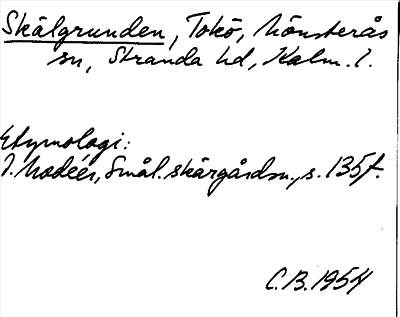 Skälgrunden, Tokö, Mönsterås
sn, Stranda hd, Kalm. l.
Etymologi:
I. Modéer, Smål. skärgårdsn., s. 135f.
C.B. 1954